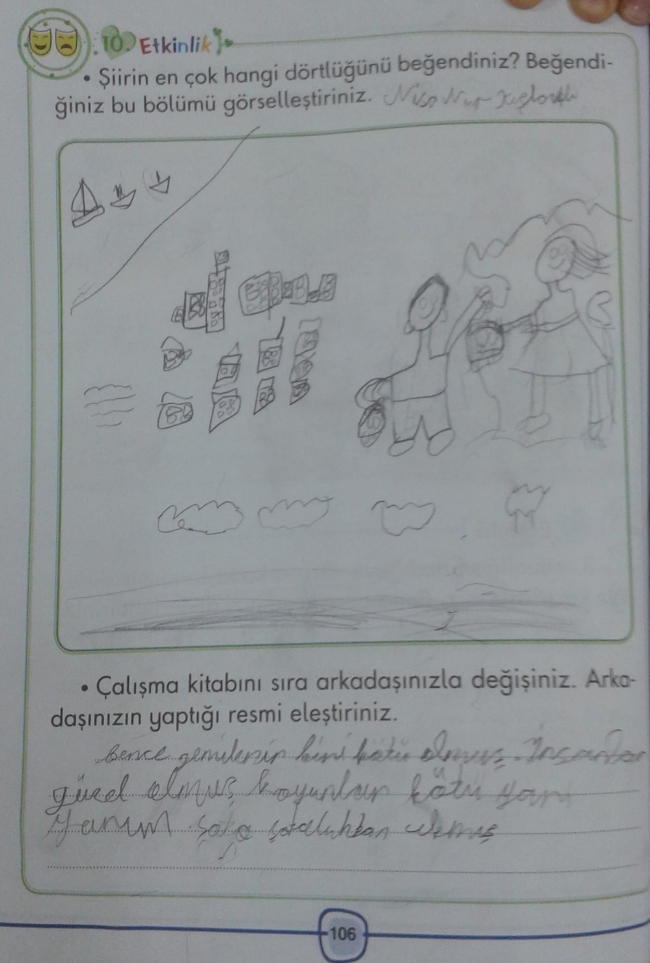 10. Etkinlik
• Şiirin en çok hangi dörtlüğünü beğendiniz? Beğendi-
ğiniz bu bölümü görselleştiriniz. Nisa Nur
• Çalışma kitabını sıra arkadaşınızla değişiniz. Arka-
daşınızın yaptığı resmi eleştiriniz.
Bence gemilerin biri kötü olmuş. İnsanlar
güzel olmuş koyunlar kötü yani
106